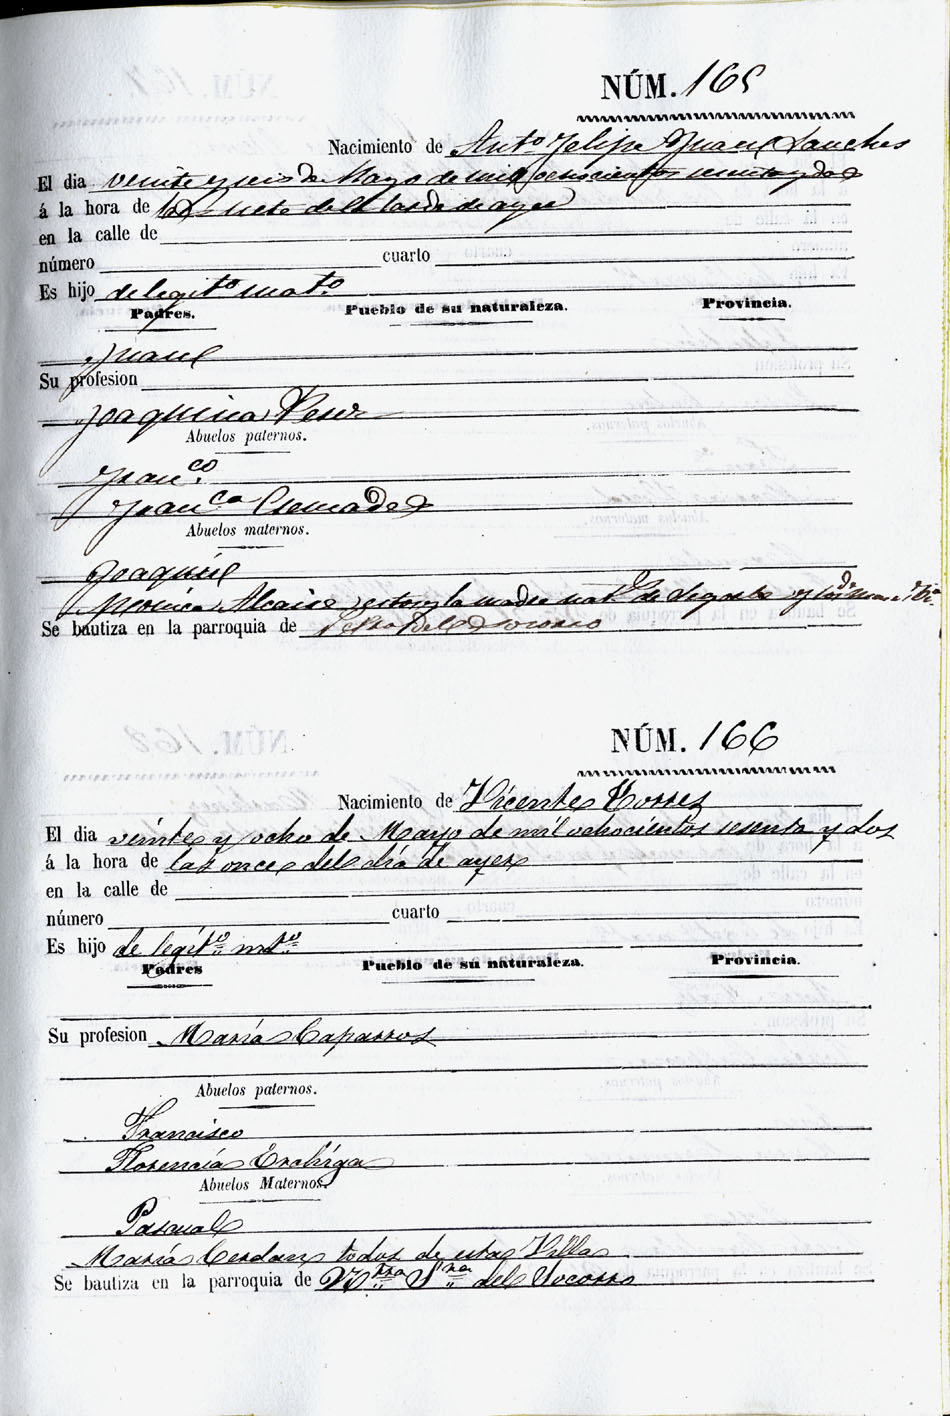 NÚM. 165
Nacimiento de Anto. Felipe Juan Sanches
El dia veinte y seis de Mayo de mil ochocientos sesenta y dos
á la hora de las siete de la tarde de ayer
en la calle de
número cuarto
Es hijo de legito. mato.
Padres. Pueblo de su naturaleza. Provincia.
Juan
Su profesion
Joaquina Perez
Abuelos paternos.
Franco.
Franca.
Abuelos maternos.
Joaquin
Monica estos y la madre nat. de y los
Se bautiza en la parroquia de del Socorro
NÚM. 166
Nacimiento de Vicente Torres
El dia veinte y ocho de Mayo de mil ochocientos sesenta y dos
á la hora de las once del día de ayer
en la calle de
número cuarto
Es hijo de legito. mto.
Padres Pueblo de su naturaleza. Provincia.
Su profesion María Caparros
Abuelos paternos.
Francisco
Florencia
Abuelos Maternos.
Pascual
María Cerdan todos de esta Villa
Se bautiza en la parroquia de Nra. Sra. del Socorro